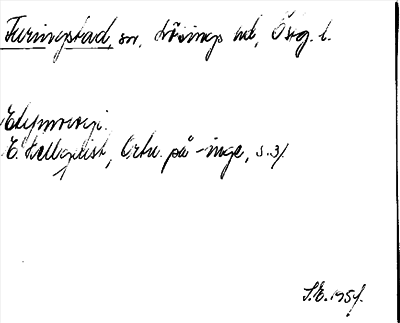 Furingstad, sn, Lösings hd, Östg. l.
Etymologi.
E. Hellquist, Ortn. på -inge, s. 31.
S.E. 1951.